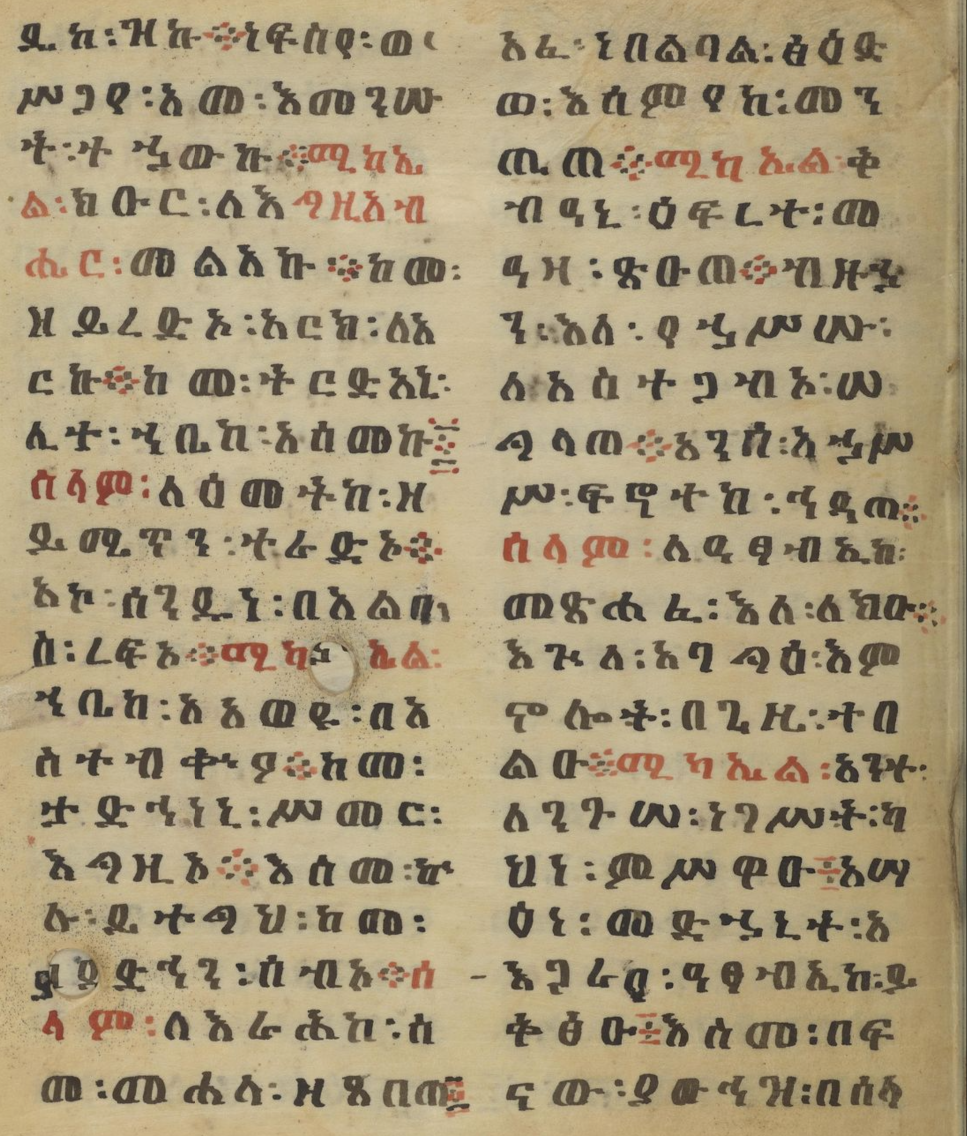 ዲ ከ፡ዝ ኩ ፨ነፍስየ፡ወ
ሥጋየ፡አመ፡እመንሡ
ት፡ተ ኗውኩ ፨ሚካኤ
ል፡ክቡር፡ለእግዚአብ
ሔር፡መልአኩ ፨ከመ፡
ዝ ይረድአ፡አርክ፡ለአ
ርኩ፨ከ መ፡ትርድአኒ፡
ሊተ፡ኀቤከ፡አስመኩ
ሰላም፡ለዕመትከ፡ዘ
ይሚጥን፡ተራድኦ፨
አኮ፡ሰንዱነ፡በአልባ
ስ፡ረፍአ፨ሚካኤል፡
ኀቤከ፡አአወዩ፡በአ
ስተብቍዖ፨ከመ፡
ታድኀነኒ፡ሥመር፡
እግዚኦ፨እስመ፡ኵ
ሉ፡ይተጋህ፡ከመ፡
ያድኅን፡ሰብአ፨ሰ
ላም፡ለእራኅከ፡ሰ
መ፡መሐላ፡ዘጸበጠ
አፈ፡ነበልባል፡ፅዕዱ
ወ፡እሰምየከ፡መን
ጢጠ፨ሚካኤል፡ቀ
ብዓኒ፡ዕፍረተ፡መ
ዓዛ፡ጽዑጠ፨ብዙኃ
ን፡እለ፡የኃሥሡ፡
ለአስተጋብኦ፡ሠ
ቈላጠ፨አንሰ፡አኃሥ
ሥ፡ፍኖተከ፡ኀዳጠ፨
ሰላም፡ለዲፃብኢከ፡
መጽሐፈ፡እለ፡ለክዑ፨
አጕለ፡አግዓዕ፡እም
ኖሎት፡በጊዜ፡ተበ
ልዑ፨ሚካኤል፡አንተ፡
ለንጉሠ፡ነገሥት፡ካ
ህነ፡ምሥዋዑ፨እሣ
ዕነ፡መድኃኒት፡አ
እጋራ፡ዓፃብኢከ፡ይ
ቀፅዑ፨እስመ፡በፍ
ናው፡ያውኅዝ፡በሰላ